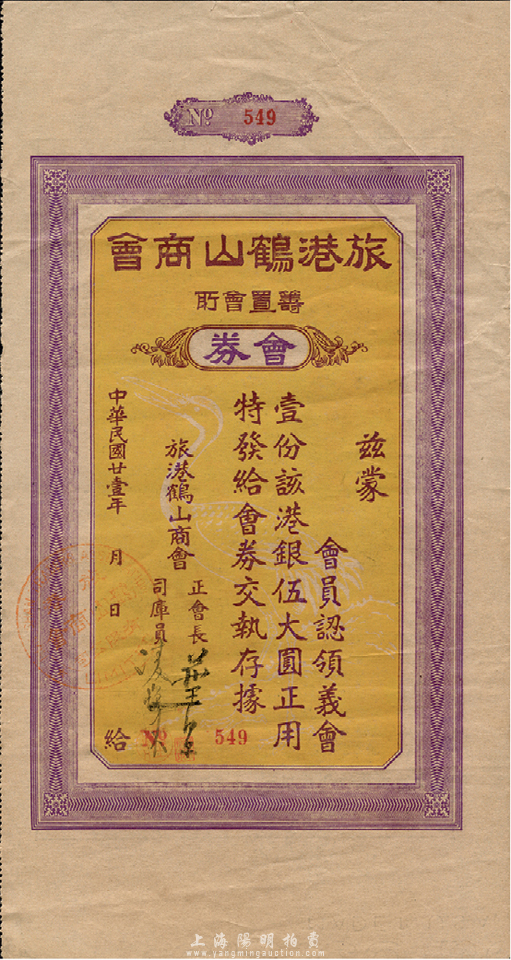 No 549
旅港鶴山商會
籌置會所
會券
茲蒙
會員認領義會
壹份該港銀伍大圓正用
特發給會券交執存據
旅港鶴山商會
正會長
司庫員
中華民國廿壹年 月 日 給
No 549
上海陽明拍賣
www.yangmingauction.com